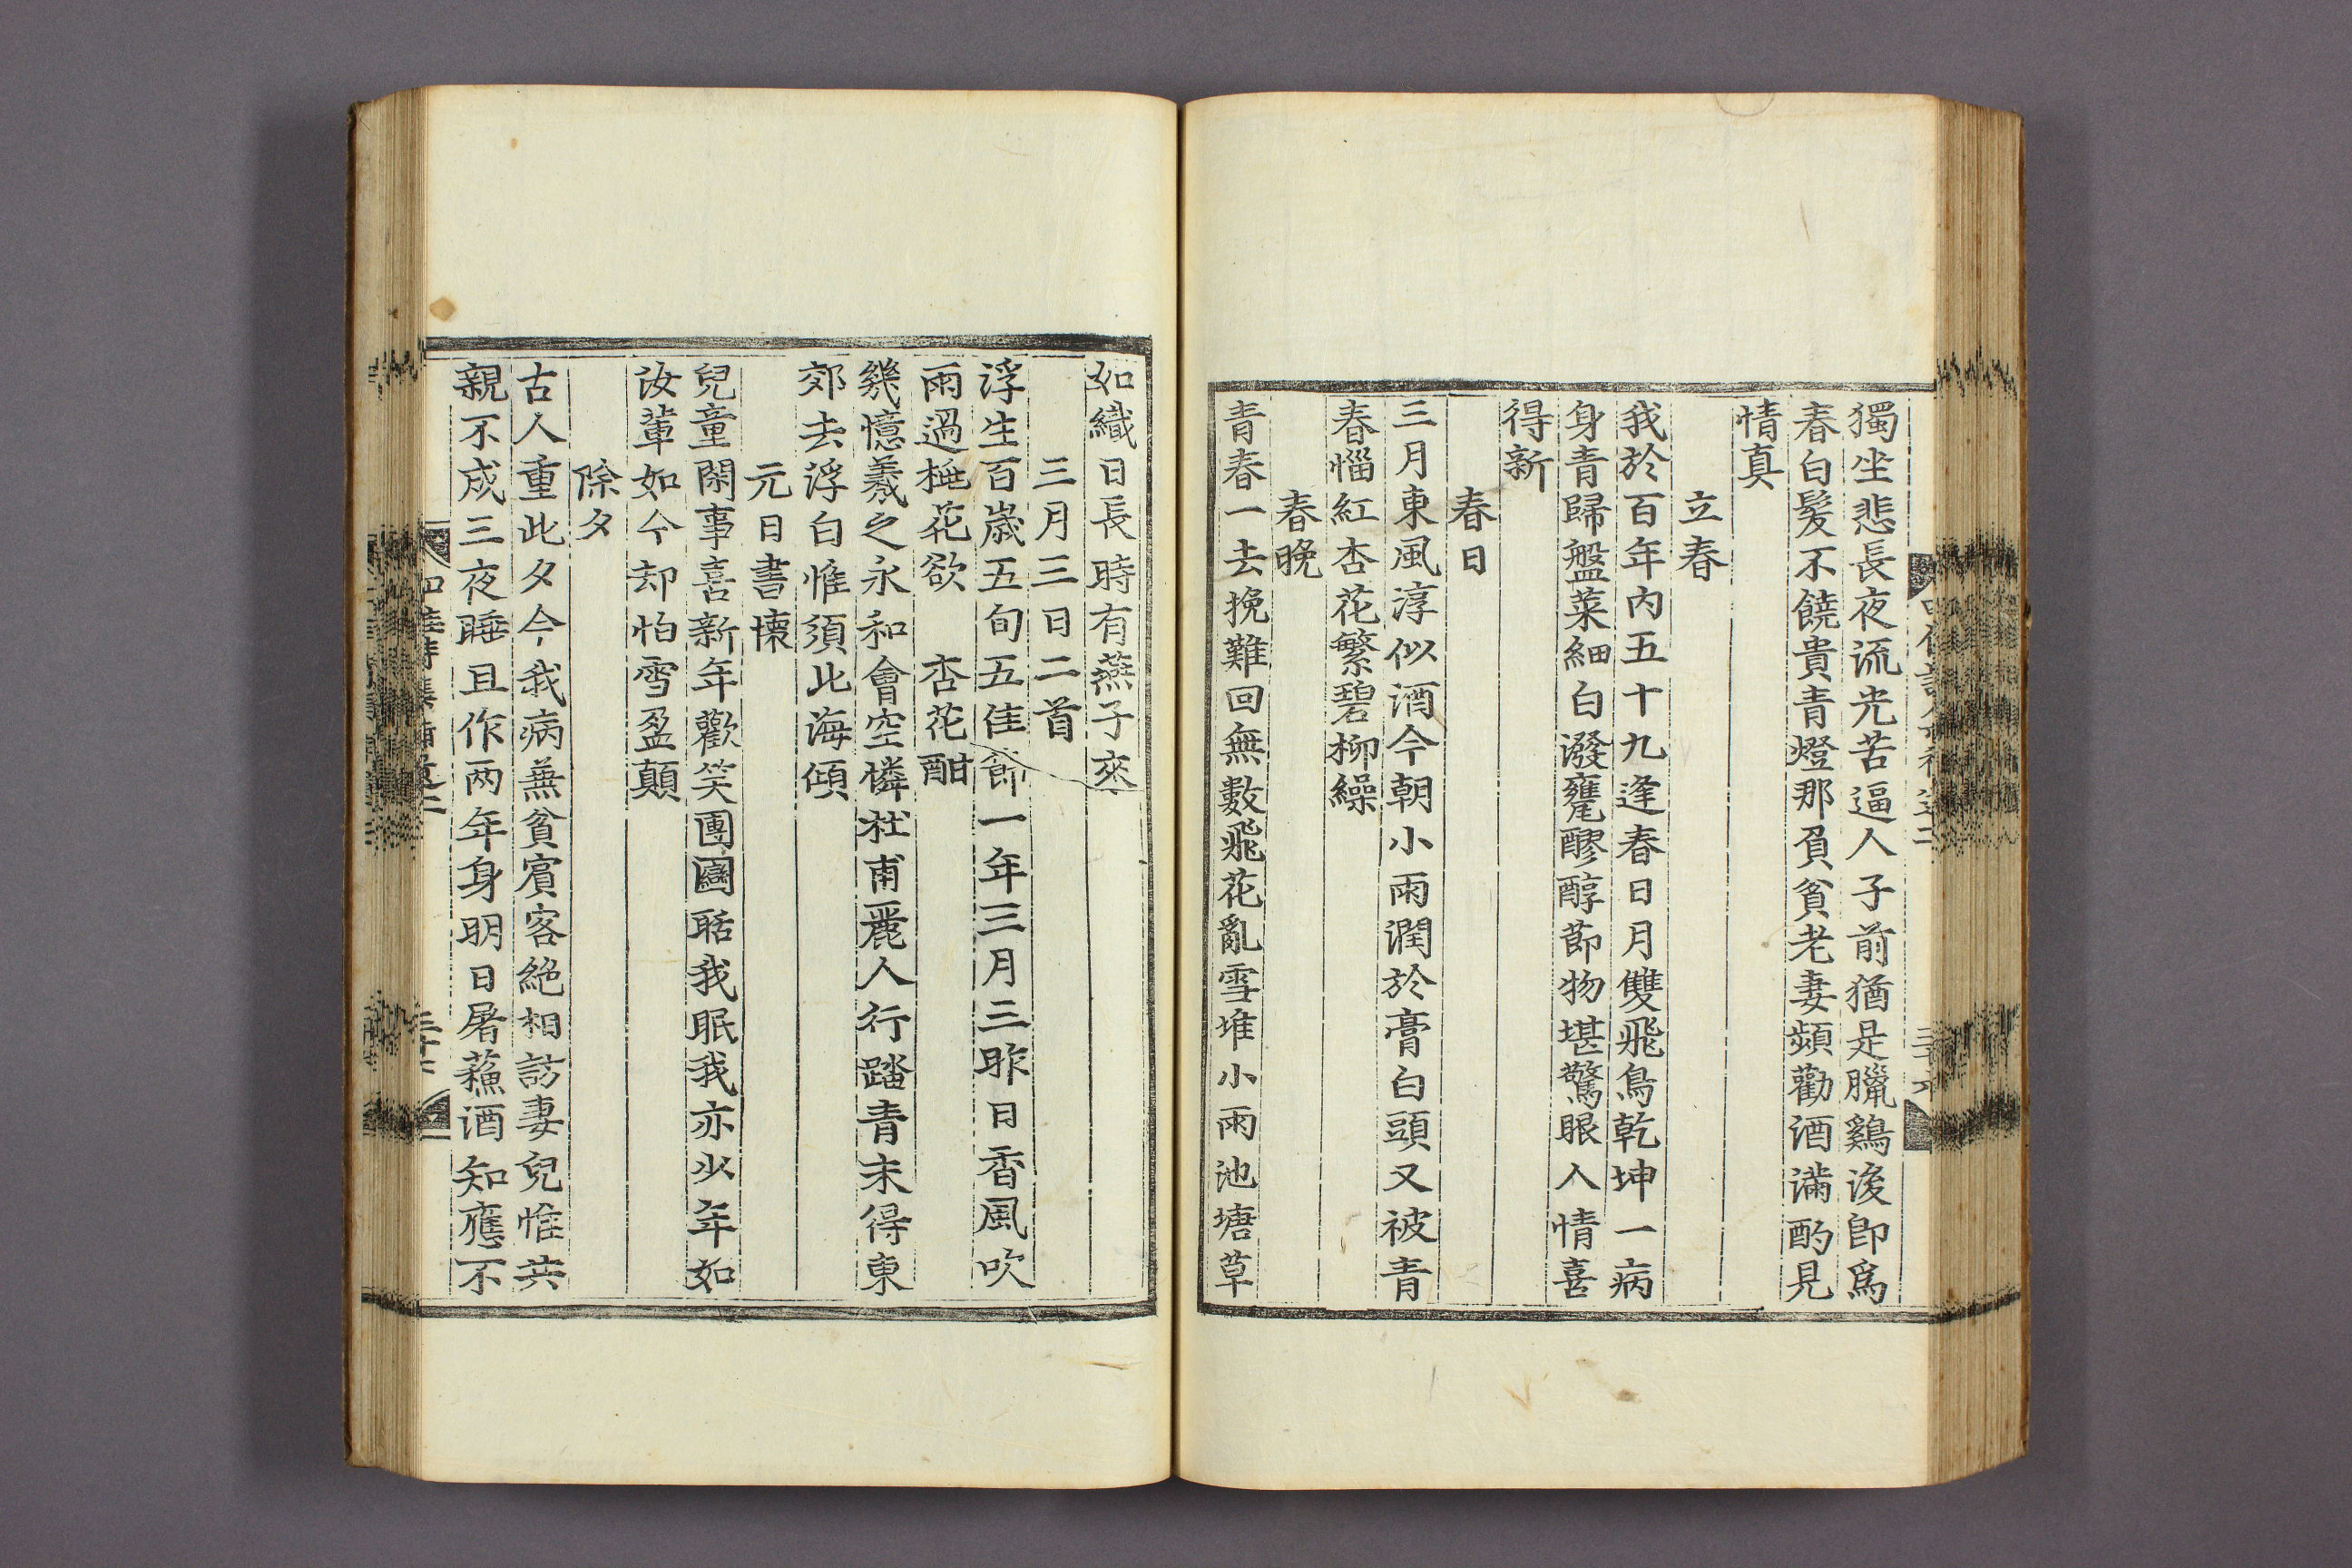 獨坐悲長夜流光苦逼人子前猶是臘鷄後卽爲
春白髮不饒貴青燈那負貧老妻頻勸酒滿酌見
情真
立春
我於百年內五十九逢春日月雙飛鳥乾坤一病
身青歸盤菜細白潑甕醪醇節物堪驚眼人情喜
得新
春日
三月東風淳似酒今朝小雨潤於膏白頭又被青
春惱紅杏花繁碧柳繰
春晚
青春一去挽難回無數飛花亂雪堆小雨池塘草
如織日長時有燕子來
三月三日二首
浮生百歲五旬五佳節一年三月三昨日香風吹
雨過 花欲 杏花酣
幾憶羲之永和會空憐杜甫麗人行踏青未得東
郊去浮白惟須北海傾
元日書懷
兒童閑事喜新年歡笑團圞聒我眠我亦少年如
汝輩如今却怕雪盈顛
除夕
古人重此夕今我病兼貧賓客絶相訪妻兒惟共
親不成三夜睡且作兩年身明日屠蘓酒知應不